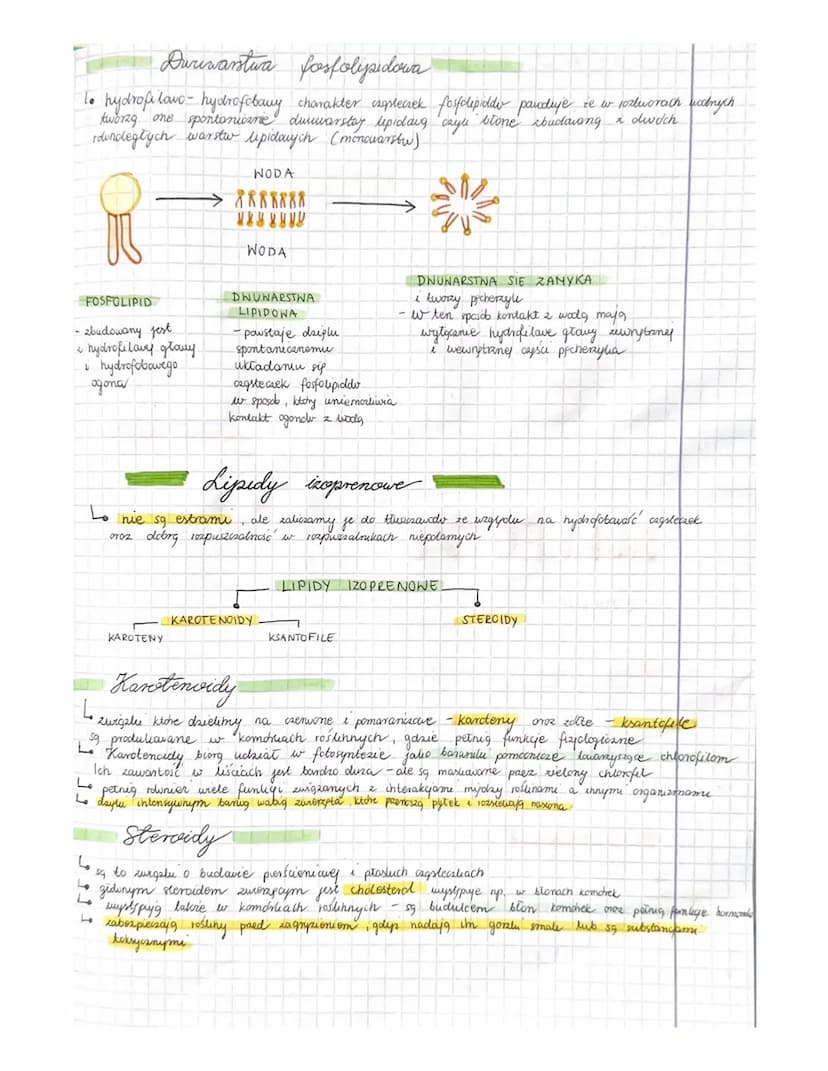 Dwuwarstwa fosfolipidowa
hydrofilowo-hydrofobowy charakter cząsteczek fosfolipidów powoduje że w roztworach wodnych
tworzą one spontanicznie dwuwarstwę lipidową czyli błonę zbudowaną z dwóch
równoległych warstw lipidowych (monowarstw)
WODA
WODA
FOSFOLIPID
- zbudowany jest
z hydrofilowej głowy
i hydrofobowego
ogona
DWUWARSTWA
LIPIDOWA
- powstaje dzięki
spontanicznemu
układaniu się
cząsteczek fosfolipidów
w sposób, który uniemożliwia
kontakt ogonów z wodą
DWUWARSTWA SIĘ ZAMYKA
i tworzy pęcherzyk
- w ten sposób kontakt z wodą mają
wyłącznie hydrofilowe głowy zewnętrznej
i wewnętrznej części pęcherzyka
Lipidy izoprenowe
nie są estrami, ale zaliczamy je do tłuszczowców ze względu na hydrofobowość cząsteczek
oraz dobrą rozpuszczalność w rozpuszczalnikach niepolarnych
LIPIDY IZOPRENOWE
KAROTENOIDY
STEROIDY
KAROTENY
KSANTOFILE
Karotenoidy
związki które dzielimy na czerwone i pomarańczowe - karoteny oraz żółte - ksantofile
są produkowane w komórkach roślinnych, gdzie pełnią funkcje fizjologiczne
Karotenoidy biorą udział w fotosyntezie jako barwniki pomocnicze towarzyszące chlorofilom
Ich zawartość w liściach jest bardzo duża - ale są maskowane przez zielony chlorofil
pełnią również wiele funkcji związanych z interakcjami między roślinami a innymi organizmami
dzięki intensywnym barwią wabią zwierzęta, które przenoszą pyłek i rozsiewają nasiona
Steroidy
są to związki o budowie pierścieniowej i płaskich cząsteczkach
głównym steroidem zwierzęcym jest cholesterol występuje np. w błonach komórek
występują także w komórkach roślinnych - są budulcem błon komórek oraz pełnią funkcje
zabezpieczają rośliny przed zagryzieniem, gdyż nadają im gorzki smak lub są substancjami
toksycznymi